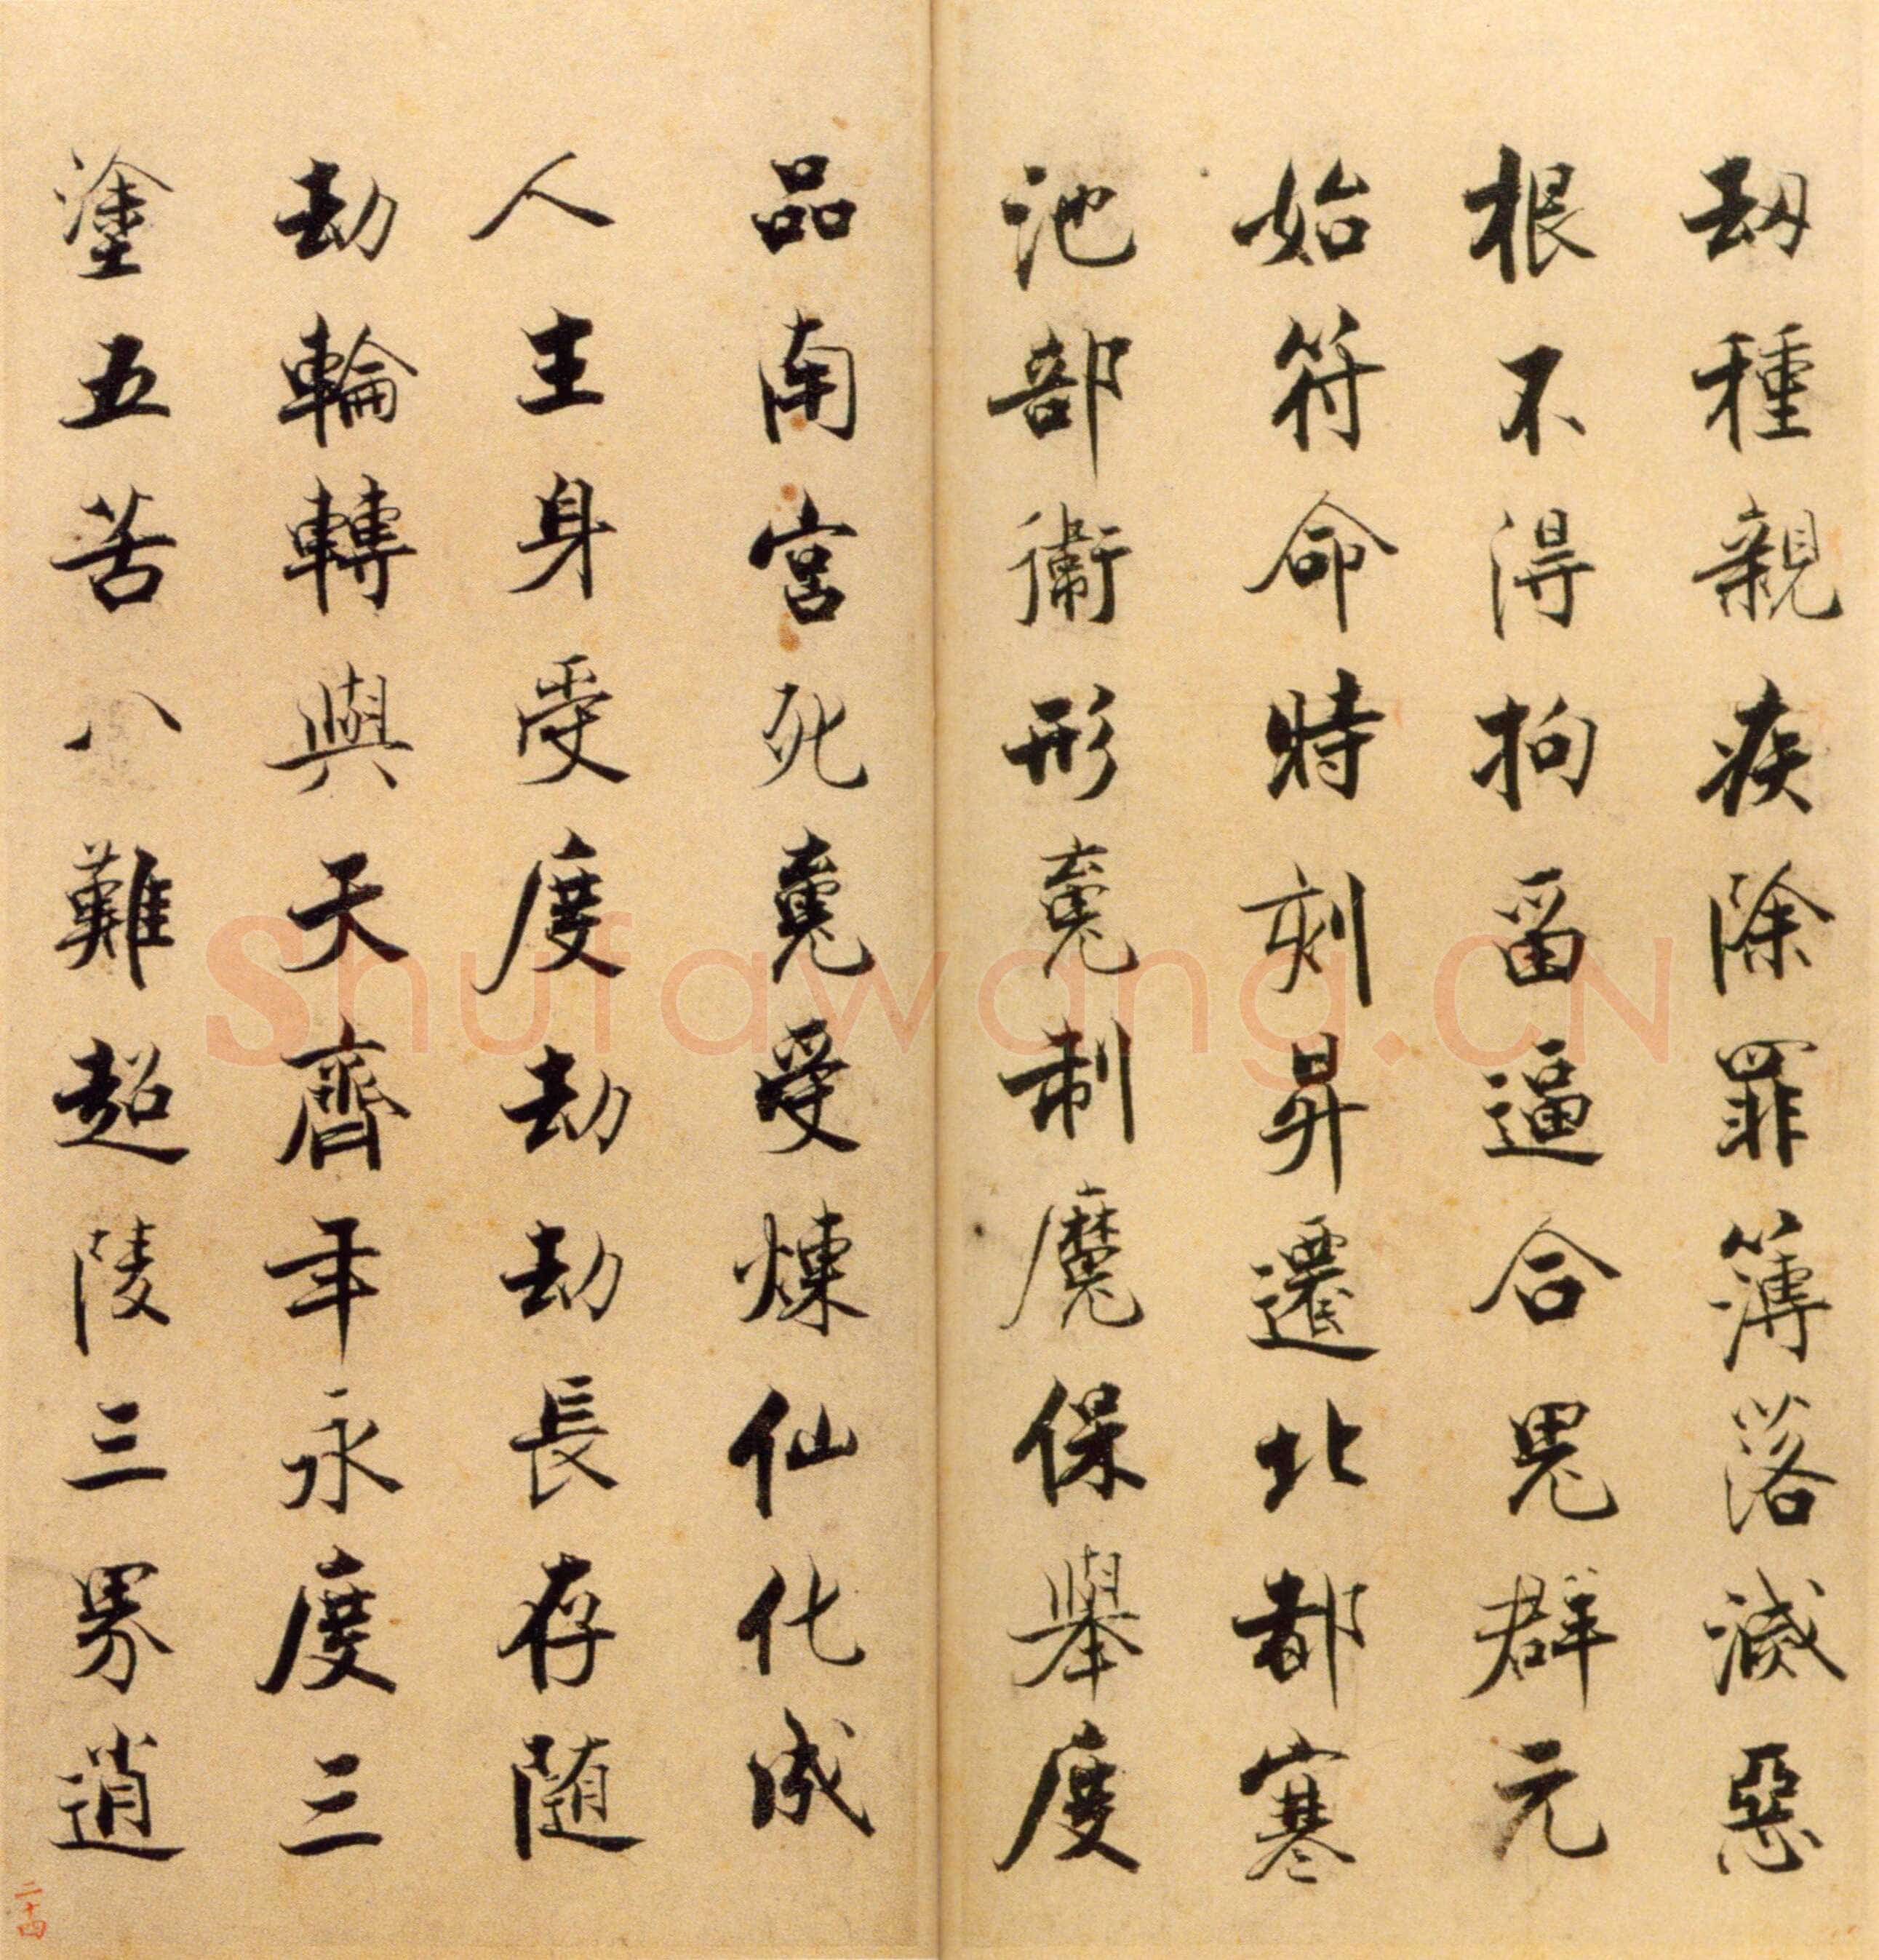 刧種親疾除罪簿落滅惡
根不得拘留逼合鬼群元
始符命時刻昇遷北都寒
池部衛形魂制魔保舉度
品南宮死魂受煉仙化成
人生身受度劫劫長存随
劫輪轉與天齊年永度三
塗五苦八難超陵三界逍
二十四
Shufawang.CN